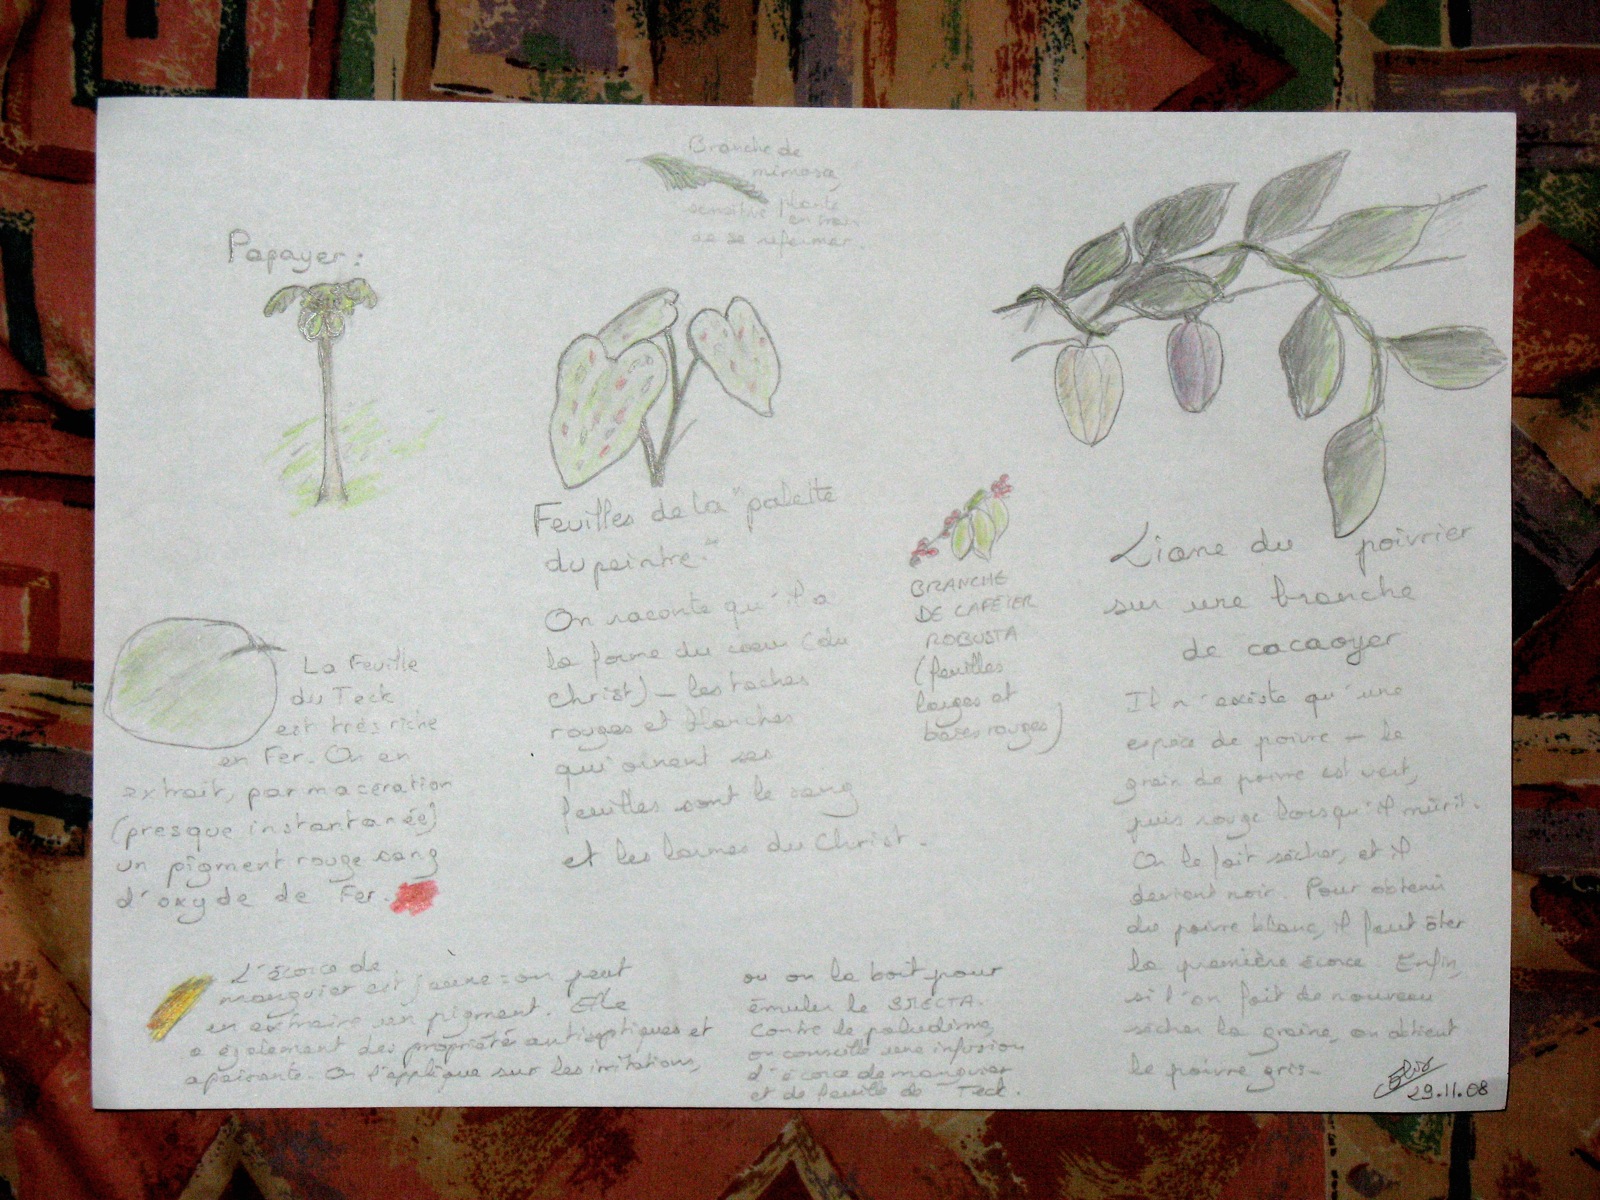 Branche de
mimosa,
plante
sensitive en train
de se refermer.
Papayer :
Feuilles de la "palette
du peintre."
On raconte qu'il a
la forme du cœur (du
Christ) – les taches
rouges et blanches
qui ornent ses
feuilles sont le sang
et les larmes du Christ.
BRANCHE
DE CAFÉIER
ROBUSTA
(feuilles
larges et
baies rouges)
Liane du poivrier
sur une branche
de cacaoyer
Il n'existe qu'une
espèce de poivre – le
grain de poivre est vert,
puis rouge lorsqu'il mûrit.
On le fait sécher, et il
devient noir. Pour obtenir
du poivre blanc, il faut ôter
la première écorce. Enfin,
si l'on fait de nouveau
sécher la graine, on obtient
le poivre gris –
La Feuille
du Teck
est très riche
en Fer. On en
extrait, par macération
(presque instantanée)
un pigment rouge sang
d'oxyde de Fer.
L'écorce de
manguier est jaune : on peut
en extraire un pigment. Elle
a également des propriétés antiseptiques et
apaisante. On l'applique sur les irritations,
ou on la boit pour
émuler le SMECTA.
Contre le paludisme,
on conseille une infusion
d'écorce de manguier
et de feuille de Teck.
29.11.08